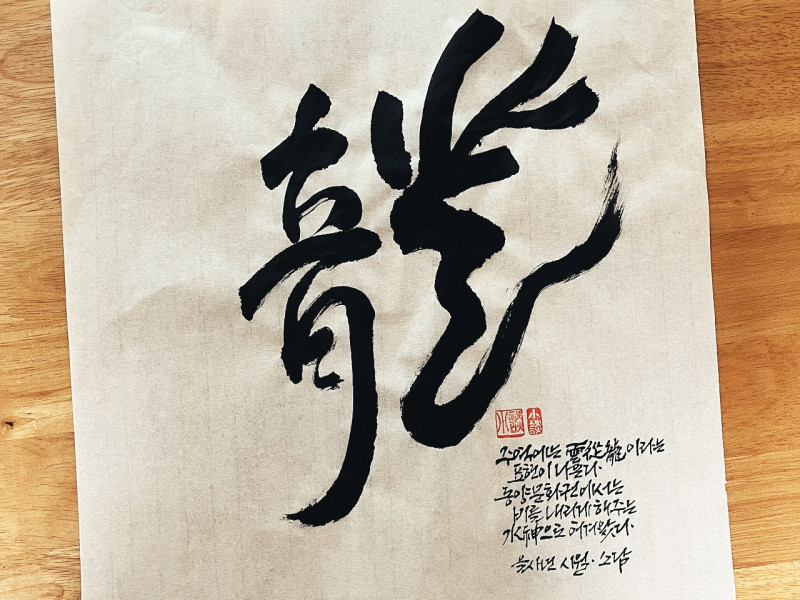 龍
小談
주역에는 雲從龍이라는
표현이 나온다.
동양문화권에서는
비를 내리게 해주는
水神으로 여겨왔다.
을사년 시월. 소담